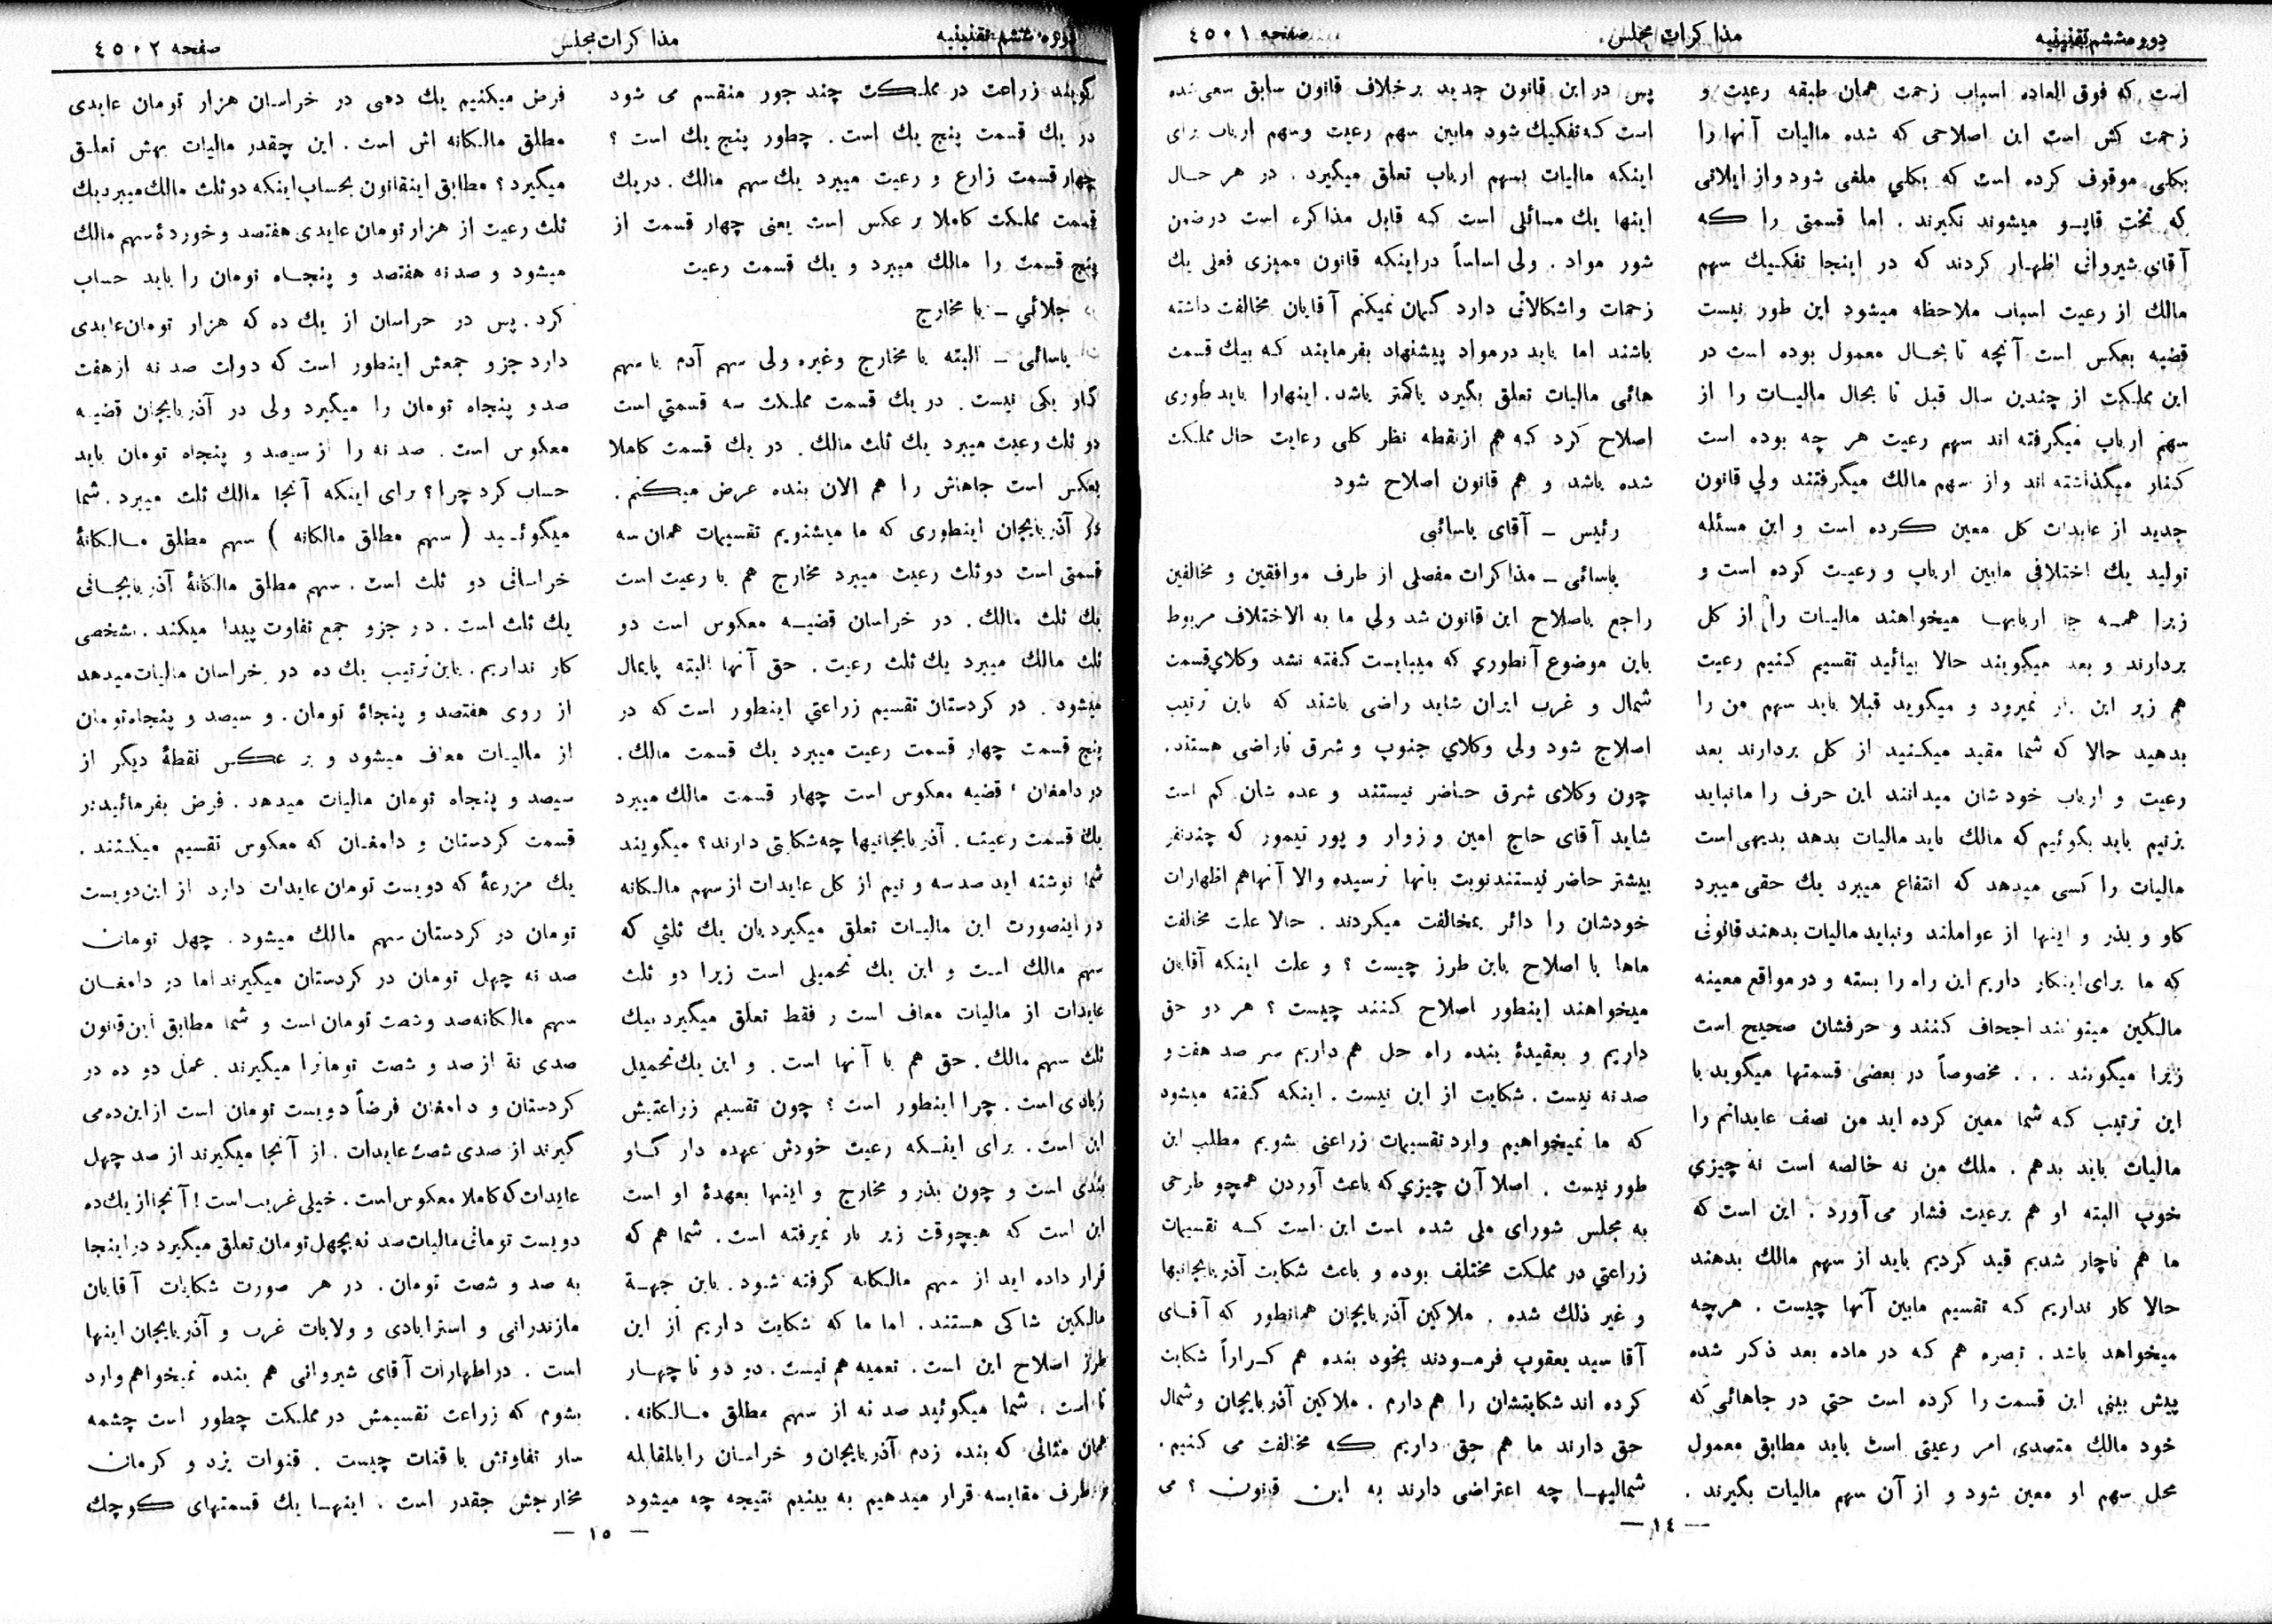 دوره ششم تقنینیه
مذاکرات مجلس
صفحه ٤٥٠١
است که فوق العاده اسباب زحمت همان طبقه رعیت و
زحمت کش است این اصلاحی که شده مالیات آنها را
بکلی موقوف کرده است که بکلي ملغی شود و از ایلاتی
که تخت قاپـو میشوند نگیرند . اما قسمتی را که
آقای شیروانی اظهار کردند که در اینجا تفکیك سهم
مالك از رعیت اسباب ملاحظه میشود این طور نیست
قضیه بعکس است آنچه تا بحال معمول بوده است در
این مملکت از چندین سال قبل تا بحال مالیات را از
سهم ارباب میگرفته اند سهم رعیت هر چه بوده است
کنار میگذاشته اند و از سهم مالك میگرفتند ولي قانون
جدید از عایدات کل معین کرده است و این مسئله
تولید یك اختلافي مابین ارباب و رعیت کرده است و
زیرا همه جا اربابها میخواهند مالیات را از کل
بردارند و بعد میگویند حالا بیائید تقسیم کنیم رعیت
هم زیر این بار نمیرود و میگوید قبلا باید سهم من را
بدهید حالا که شما مقید میکنید از کل بردارند بعد
رعیت و ارباب خودشان میدانند این حرف را ما نباید
بزنیم باید بگوئیم که مالك باید مالیات بدهد بدیهی است
مالیات را کسی میدهد که انتفاع میبرد یك حقی میبرد
کاو و بذر و اینها از عواملند و نباید مالیات بدهند قانونی
که ما برای اینکار داریم این راه را بسته و در مواقع معینه
مالکین میتوانند اجحاف کنند و حرفشان صحیح است
زیرا میگویند . . . مخصوصاً در بعضی قسمتها میگوید با
این ترتیب که شما معین کرده اید من نصف عایداتم را
مالیات باید بدهم . ملك من نه خالصه است نه چیزي
خوب البته او هم برعیت فشار می آورد . این است که
ما هم ناچار شدیم قید کردیم باید از سهم مالك بدهند
حالا کار نداریم که تقسیم مابین آنها چیست . هرچه
میخواهد باشد . تبصره هم که در ماده بعد ذکر شده
پیش بینی این قسمت را کرده است حتی در جاهائی که
خود مالك متصدی امر رعیتی است باید مطابق معمول
محل سهم او معین شود و از آن سهم مالیات بگیرند .
پس در این قانون جدید برخلاف قانون سابق سعی شده
است که تفکیك شود مابین سهم رعیت و سهم ارباب برای
اینکه مالیات بسهم ارباب تعلق میگیرد . در هر حال
اینها یك مسائلی است که قابل مذاکره است در ضمن
شور مواد . ولی اساساً در اینکه قانون ممیزی فعلی یك
زحمات و اشکالاتی دارد گمان نمیکنم آقایان مخالفت داشته
باشند اما باید در مواد پیشنهاد بفرمایند که بیك قسمت
هائی مالیات تعلق بگیرد یا کمتر باشد . اینها را باید طوری
اصلاح کرد که هم از نقطه نظر کلی رعایت حال مملکت
شده باشد و هم قانون اصلاح شود
رئیس - آقای یاسائی
یاسائی - مذاکرات مفصلی از طرف موافقین و مخالفین
راجع باصلاح این قانون شد ولي ما به الاختلاف مربوط
باین موضوع آنطوري که میبایست گفته نشد وکلاي قسمت
شمال و غرب ایران شاید راضی باشند که باین ترتیب
اصلاح شود ولی وکلاي جنوب و شرق ناراضی هستند .
چون وکلای شرق حاضر نیستند و عده شان کم است
شاید آقای حاج امین و زوار و پور تیمور که چند نفر
بیشتر حاضر نیستند نوبت بانها نرسیده والا آنها هم اظهارات
خودشان را دائر بمخالفت میکردند . حالا علت مخالفت
ماها با اصلاح باین طرز چیست ؟ و علت اینکه آقایان
میخواهند اینطور اصلاح کنند چیست ؟ هر دو حق
داریم و بعقیدۀ بنده راه حل هم داریم سر صد هفت و
صد نه نیست . شکایت از این نیست . اینکه گفته میشود
که ما نمیخواهیم وارد تقسیمات زراعتی بشویم مطلب این
طور نیست . اصلا آن چیزي که باعث آوردن همچو طرحی
به مجلس شورای ملی شده است این است که تقسیمات
زراعتي در مملکت مختلف بوده و باعث شکایت آذربایجانیها
و غیر ذلك شده . ملاکین آذربایجان همانطور که آقای
آقا سید یعقوب فرمودند بخود بنده هم کراراً شکایت
کرده اند شکایتشان را هم دارم . ملاکین آذربایجان و شمال
حق دارند ما هم حق داریم که مخالفت می کنیم .
شمالیها چه اعتراضی دارند به این قانون ؟ می
— ١٤ —
دوره ششم تقنینیه
مذاکرات مجلس
صفحه ٤٥٠٢
گویند زراعت در مملکت چند جور منقسم می شود
در یك قسمت پنج یك است . چطور پنج یك است ؟
چهار قسمت زارع و رعیت میبرد یك سهم مالك . در یك
قسمت مملکت کاملا بر عکس است یعنی چهار قسمت از
پنج قسمت را مالك میبرد و یك قسمت رعیت
جلائي - با مخارج
یاسائی - البته با مخارج وغیره ولی سهم آدم با سهم
گار یکی نیست . در یك قسمت مملکت سه قسمتي است
دو ثلث رعیت میبرد یك ثلث مالك . در یك قسمت کاملا
بعکس است جاهاش را هم الان بنده عرض میکنم .
آذربایجان اینطوری که ما میشنویم تقسیمات همان سه
قسمتی است دو ثلث رعیت میبرد مخارج هم با رعیت است
یك ثلث مالك . در خراسان قضیه معکوس است دو
ثلث مالك میبرد یك ثلث رعیت . حق آنها البته پایمال
میشود . در کردستان تقسیم زراعتي اینطور است که در
پنج قسمت چهار قسمت رعیت میبرد یك قسمت مالك .
در دامغان ، قضیه معکوس است چهار قسمت مالك میبرد
یك قسمت رعیت . آذربایجانیها چه شکایتی دارند ؟ میگویند
شما نوشته اید صد سه و نیم از کل عایدات از سهم مالکانه
در اینصورت این مالیات تعلق میگیرد بان یك ثلثي که
سهم مالك است و این یك تحمیلی است زیرا دو ثلث
عایدات از مالیات معاف است و فقط تعلق میگیرد بیك
ثلث سهم مالك . حق هم با آنها است . و این یك تحمیل
زیادی است . چرا اینطور است ؟ چون تقسیم زراعتیش
این است . برای اینکه رعیت خودش عهده دار گاو
بندی است و چون بذر و مخارج و اینها بعهدۀ او است
این است که هیچوقت زیر بار نمیرفته است . شما هم که
قرار داده اید از سهم مالکانه گرفته شود . باین جهة
مالکین شاکی هستند . اما ما که شکایت داریم از این
طرز اصلاح این است . تعمیه هم نیست . دو دو تا چهار
تا است . شما میگوئید صد نه از سهم مطلق مالکانه .
همان مثالی که بنده زدم آذربایجان و خراسان را بالمقابله
طرف مقایسه قرار میدهیم به بینیم نتیجه چه میشود
فرض میکنیم یك دهی در خراسان هزار تومان عایدی
مطلق مالکانه اش است . این چقدر مالیات بهش تعلق
میگیرد ؟ مطابق اینقانون بحساب اینکه دو ثلث مالك میبرد یك
ثلث رعیت از هزار تومان عایدی هفتصد و خوردۀ سهم مالك
میشود و صد نه هفتصد و پنجاه تومان را باید حساب
کرد . پس در خراسان از یك ده که هزار تومان عایدی
دارد جزو جمعش اینطور است که دولت صد نه از هفت
صد و پنجاه تومان را میگیرد ولی در آذربایجان قضیه
معکوس است . صد نه را از سیصد و پنجاه تومان باید
حساب کرد چرا ؟ برای اینکه آنجا مالك ثلث میبرد . شما
میگوئید ( سهم مطلق مالکانه ) سهم مطلق مالکانۀ
خراسانی دو ثلث است . سهم مطلق مالکانۀ آذربایجانی
یك ثلث است . در جزو جمع تفاوت پیدا میکند . بشخصی
کار نداریم . باین ترتیب یك ده در خراسان مالیات میدهد
از روی هفتصد و پنجاۀ تومان . و سیصد و پنجاه تومان
از مالیات معاف میشود و بر عکس نقطۀ دیگر از
سیصد و پنجاه تومان مالیات میدهد . فرض بفرمائید در
قسمت کردستان و دامغان که معکوس تقسیم میکنند .
یك مزرعۀ که دویست تومان عایدات دارد از این دویست
تومان در کردستان سهم مالك میشود . چهل تومان
صد نه چهل تومان در کردستان میگیرند اما در دامغان
سهم مالکانه صد و شصت تومان است و شما مطابق این قانون
صدی نۀ از صد و شصت تومانرا میگیرند . عمل دو ده در
کردستان و دامغان فرضاً دویست تومان است از این ده می
گیرند از صدی شصت عایدات . از آنجا میگیرند از صد چهل
عایدات که کاملا معکوس است . خیلی غریب است ! آنجا از یك ده
دویست تومانی مالیات صد نه بچهل تومان تعلق میگیرد در اینجا
به صد و شصت تومان . در هر صورت شکایات آقایان
مازندرانی و استرابادی و ولایات غرب و آذربایجان اینها
است . در اظهارات آقای شیروانی هم بنده نمیخواهم وارد
بشوم که زراعت تقسیمش در مملکت چطور است چشمه
سار تفاوتش با قنات چیست . قنوات یزد و کرمان
مخارجش چقدر است . اینها یك قسمتهای کوچك
— ١٥ —